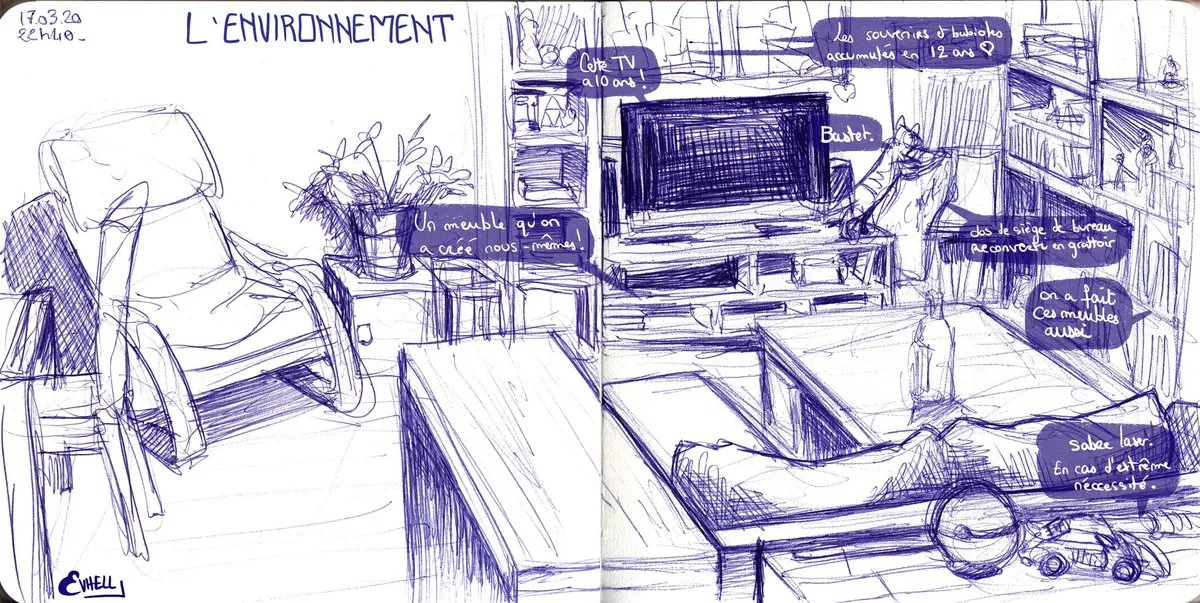 17.03.20
22H40_
L'ENVIRONNEMENT
Cette TV
a 10 ans !
Les souvenirs & babioles
accumulés en 12 ans ♡
Bastet.
Un meuble qu'on
a créé nous-mêmes !
dos de siège de bureau
reconverti en grattoir
on a fait
ces meubles
aussi
sabre laser.
En cas d'extrême
nécessité.
EVHELL